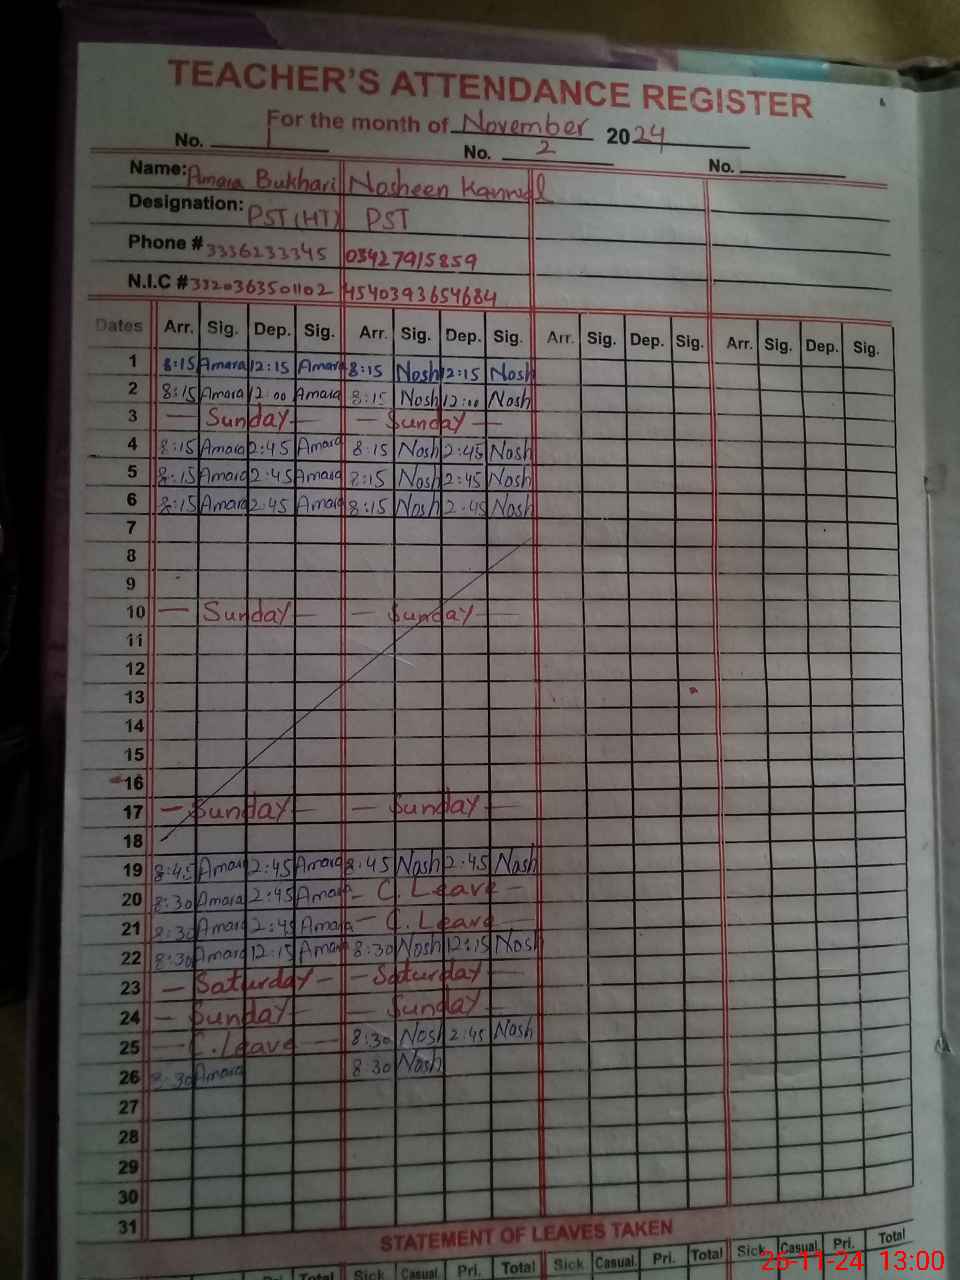 TEACHER'S ATTENDANCE REGISTER
For the month of November 2024
No. 1 No. 2 No.
Name: Amara Bukhari Nosheen Kanwal
Designation: PST(HT) PST
Phone # 3336233345 03427915859
N.I.C # 3320363501102 4540393654684
Dates Arr. Sig. Dep. Sig. Arr. Sig. Dep. Sig. Arr. Sig. Dep. Sig. Arr. Sig. Dep. Sig.
1 8:15 Amara 12:15 Amara 8:15 Nosh 12:15 Nosh
2 8:15 Amara 12:00 Amara 8:15 Nosh 12:00 Nosh
3 — Sunday — — Sunday —
4 8:15 Amara 2:45 Amara 8:15 Nosh 2:45 Nosh
5 8:15 Amara 2:45 Amara 8:15 Nosh 2:45 Nosh
6 8:15 Amara 2:45 Amara 8:15 Nosh 2:45 Nosh
7
8
9
10 — Sunday — — Sunday —
11
12
13
14
15
16
17 — Sunday — — Sunday —
18
19 8:45 Amara 2:45 Amara 8:45 Nosh 2:45 Nosh
20 8:30 Amara 2:45 Amara — C. Leave —
21 8:30 Amara 2:45 Amara — C. Leave —
22 8:30 Amara 12:15 Amara 8:30 Nosh 12:15 Nosh
23 — Saturday — — Saturday —
24 — Sunday — — Sunday —
25 — C. Leave — 8:30 Nosh 2:45 Nosh
26 8:30 Amara 8:30 Nosh
27
28
29
30
31
STATEMENT OF LEAVES TAKEN
Pri. Total Sick Casual Pri. Total Sick Casual Pri. Total Sick Casual Pri. Total
26-11-24 13:00